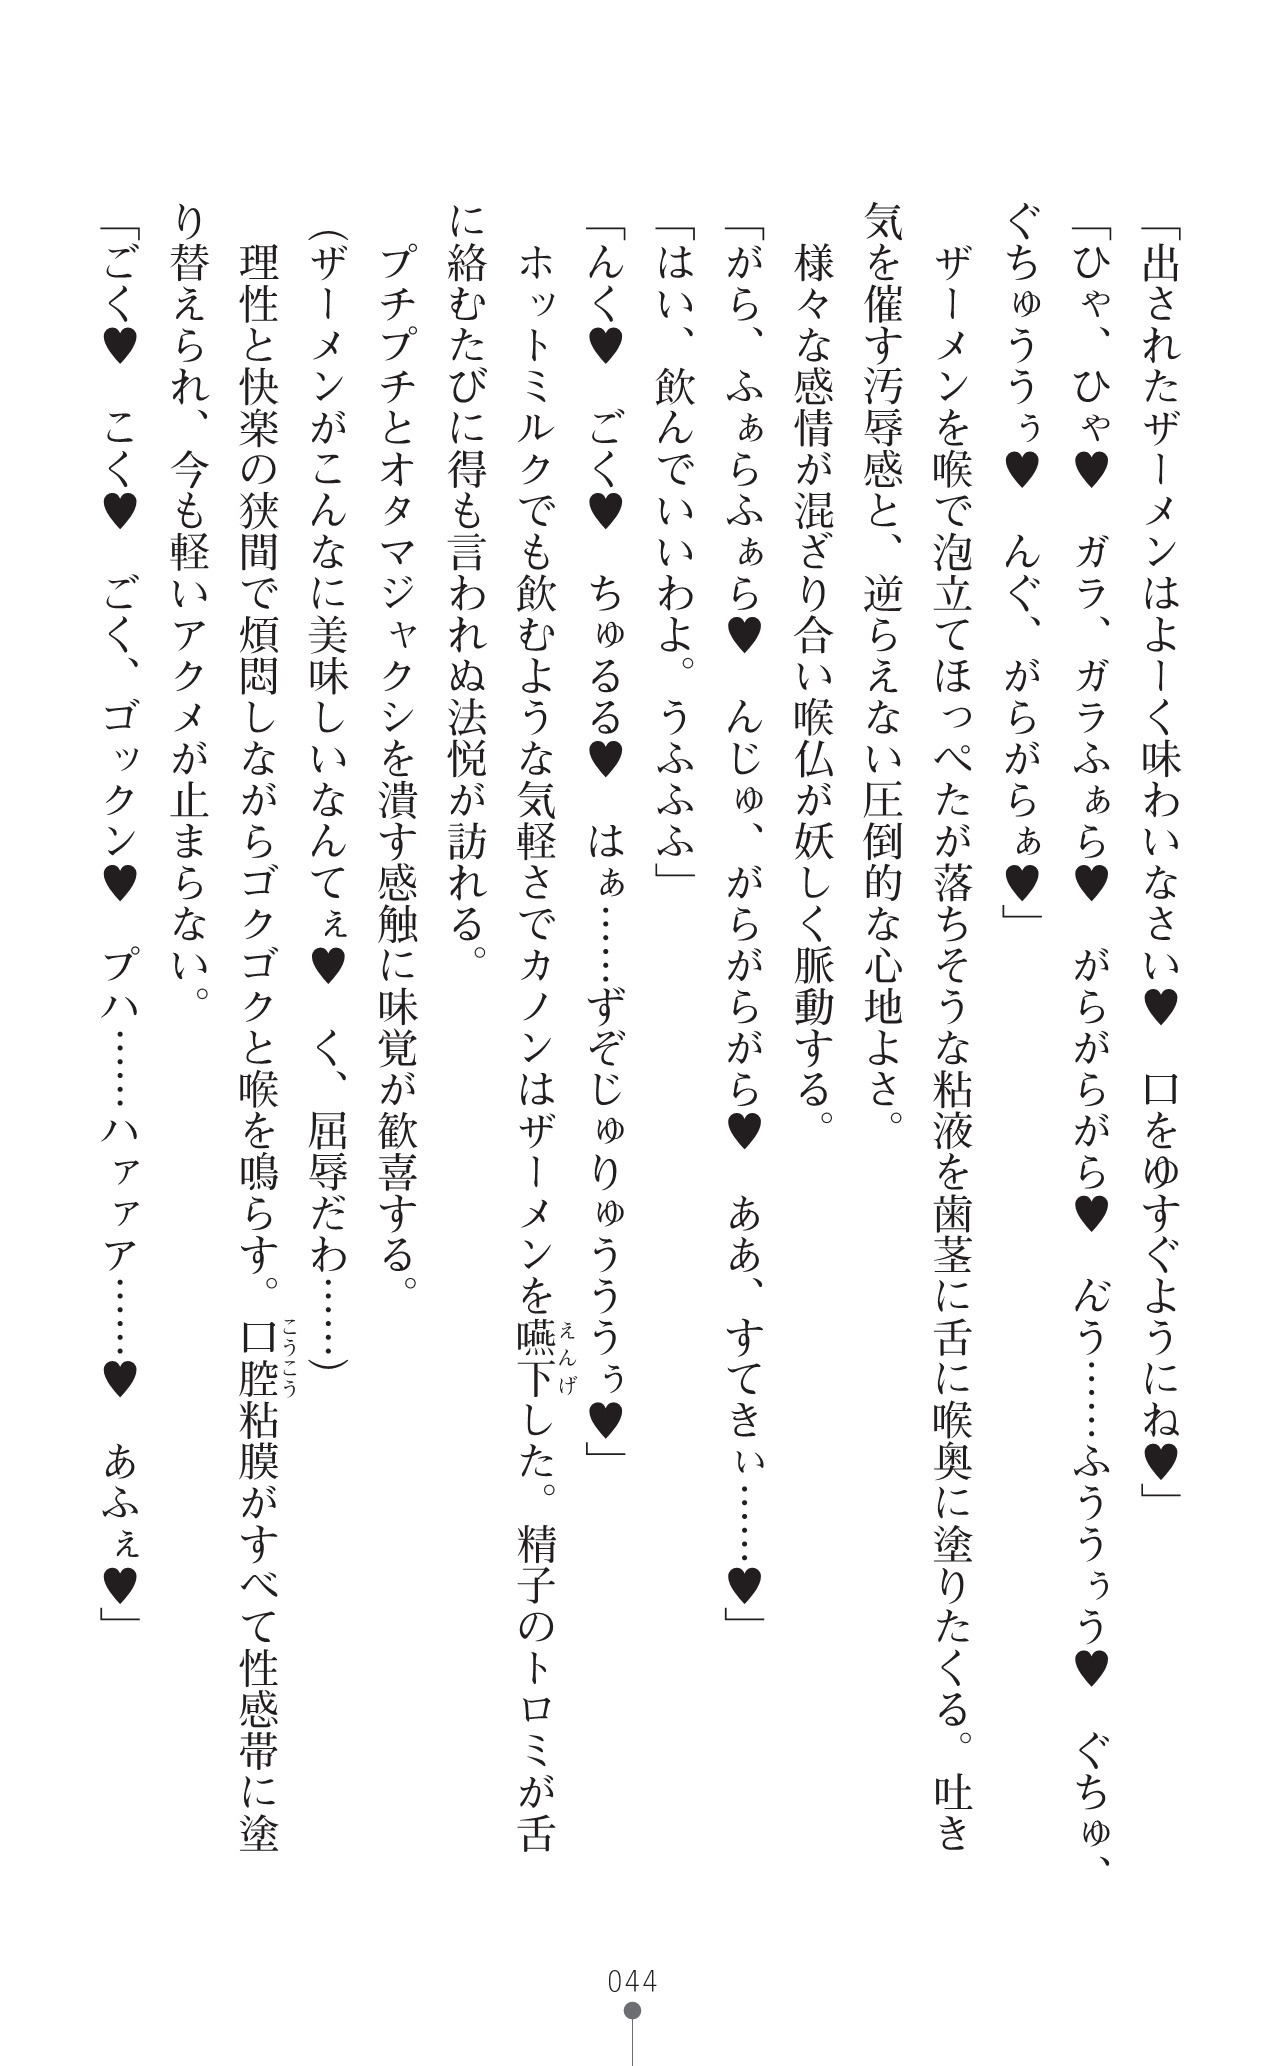 「出されたザーメンはよーく味わいなさい♥　口をゆすぐようにね♥」
「ひゃ、ひゃ♥　ガラ、ガラふぁら♥　がらがらがら♥　ん゙う……ふううぅう♥　ぐちゅ、
ぐちゅううぅ♥　んぐ、がらがらぁ♥」
　ザーメンを喉で泡立てほっぺたが落ちそうな粘液を歯茎に舌に喉奥に塗りたくる。吐き
気を催す汚辱感と、逆らえない圧倒的な心地よさ。
　様々な感情が混ざり合い喉仏が妖しく脈動する。
「がら、ふぁらふぁら♥　んじゅ、がらがらがら♥　ああ、すてきぃ……♥」
「はい、飲んでいいわよ。うふふふ」
「んく♥　ごく♥　ちゅるる♥　はぁ……ずぞじゅりゅうううぅ♥」
　ホットミルクでも飲むような気軽さでカノンはザーメンを嚥下した。精子のトロミが舌
えんげ
に絡むたびに得も言われぬ法悦が訪れる。
　プチプチとオタマジャクシを潰す感触に味覚が歓喜する。
（ザーメンがこんなに美味しいなんてぇ♥　く、屈辱だわ……）
　理性と快楽の狭間で煩悶しながらゴクゴクと喉を鳴らす。口腔粘膜がすべて性感帯に塗
こうこう
り替えられ、今も軽いアクメが止まらない。
「ごく♥　こく♥　ごく、ゴックン♥　プハ……ハァァア……♥　あふぇ♥」
044